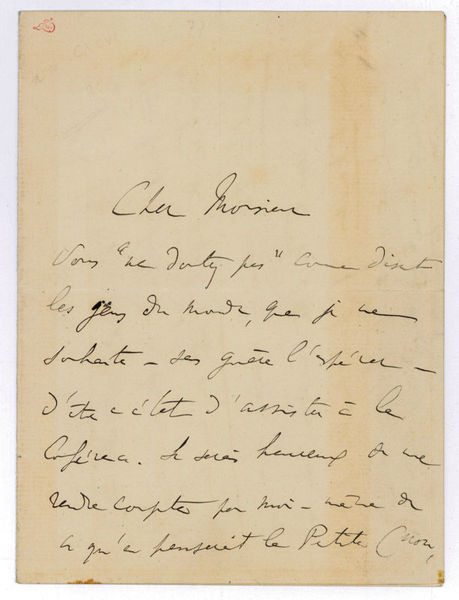 Cher Monsieur
Vous "ne doutez pas" comme disent
les gens du monde, que je ne
souhaite – sans guère l'espérer –
d'être en état d'assister à la
Conférence. Je serais heureux de me
rendre compte par moi-même de
ce qu'en penserait le Petite (non,